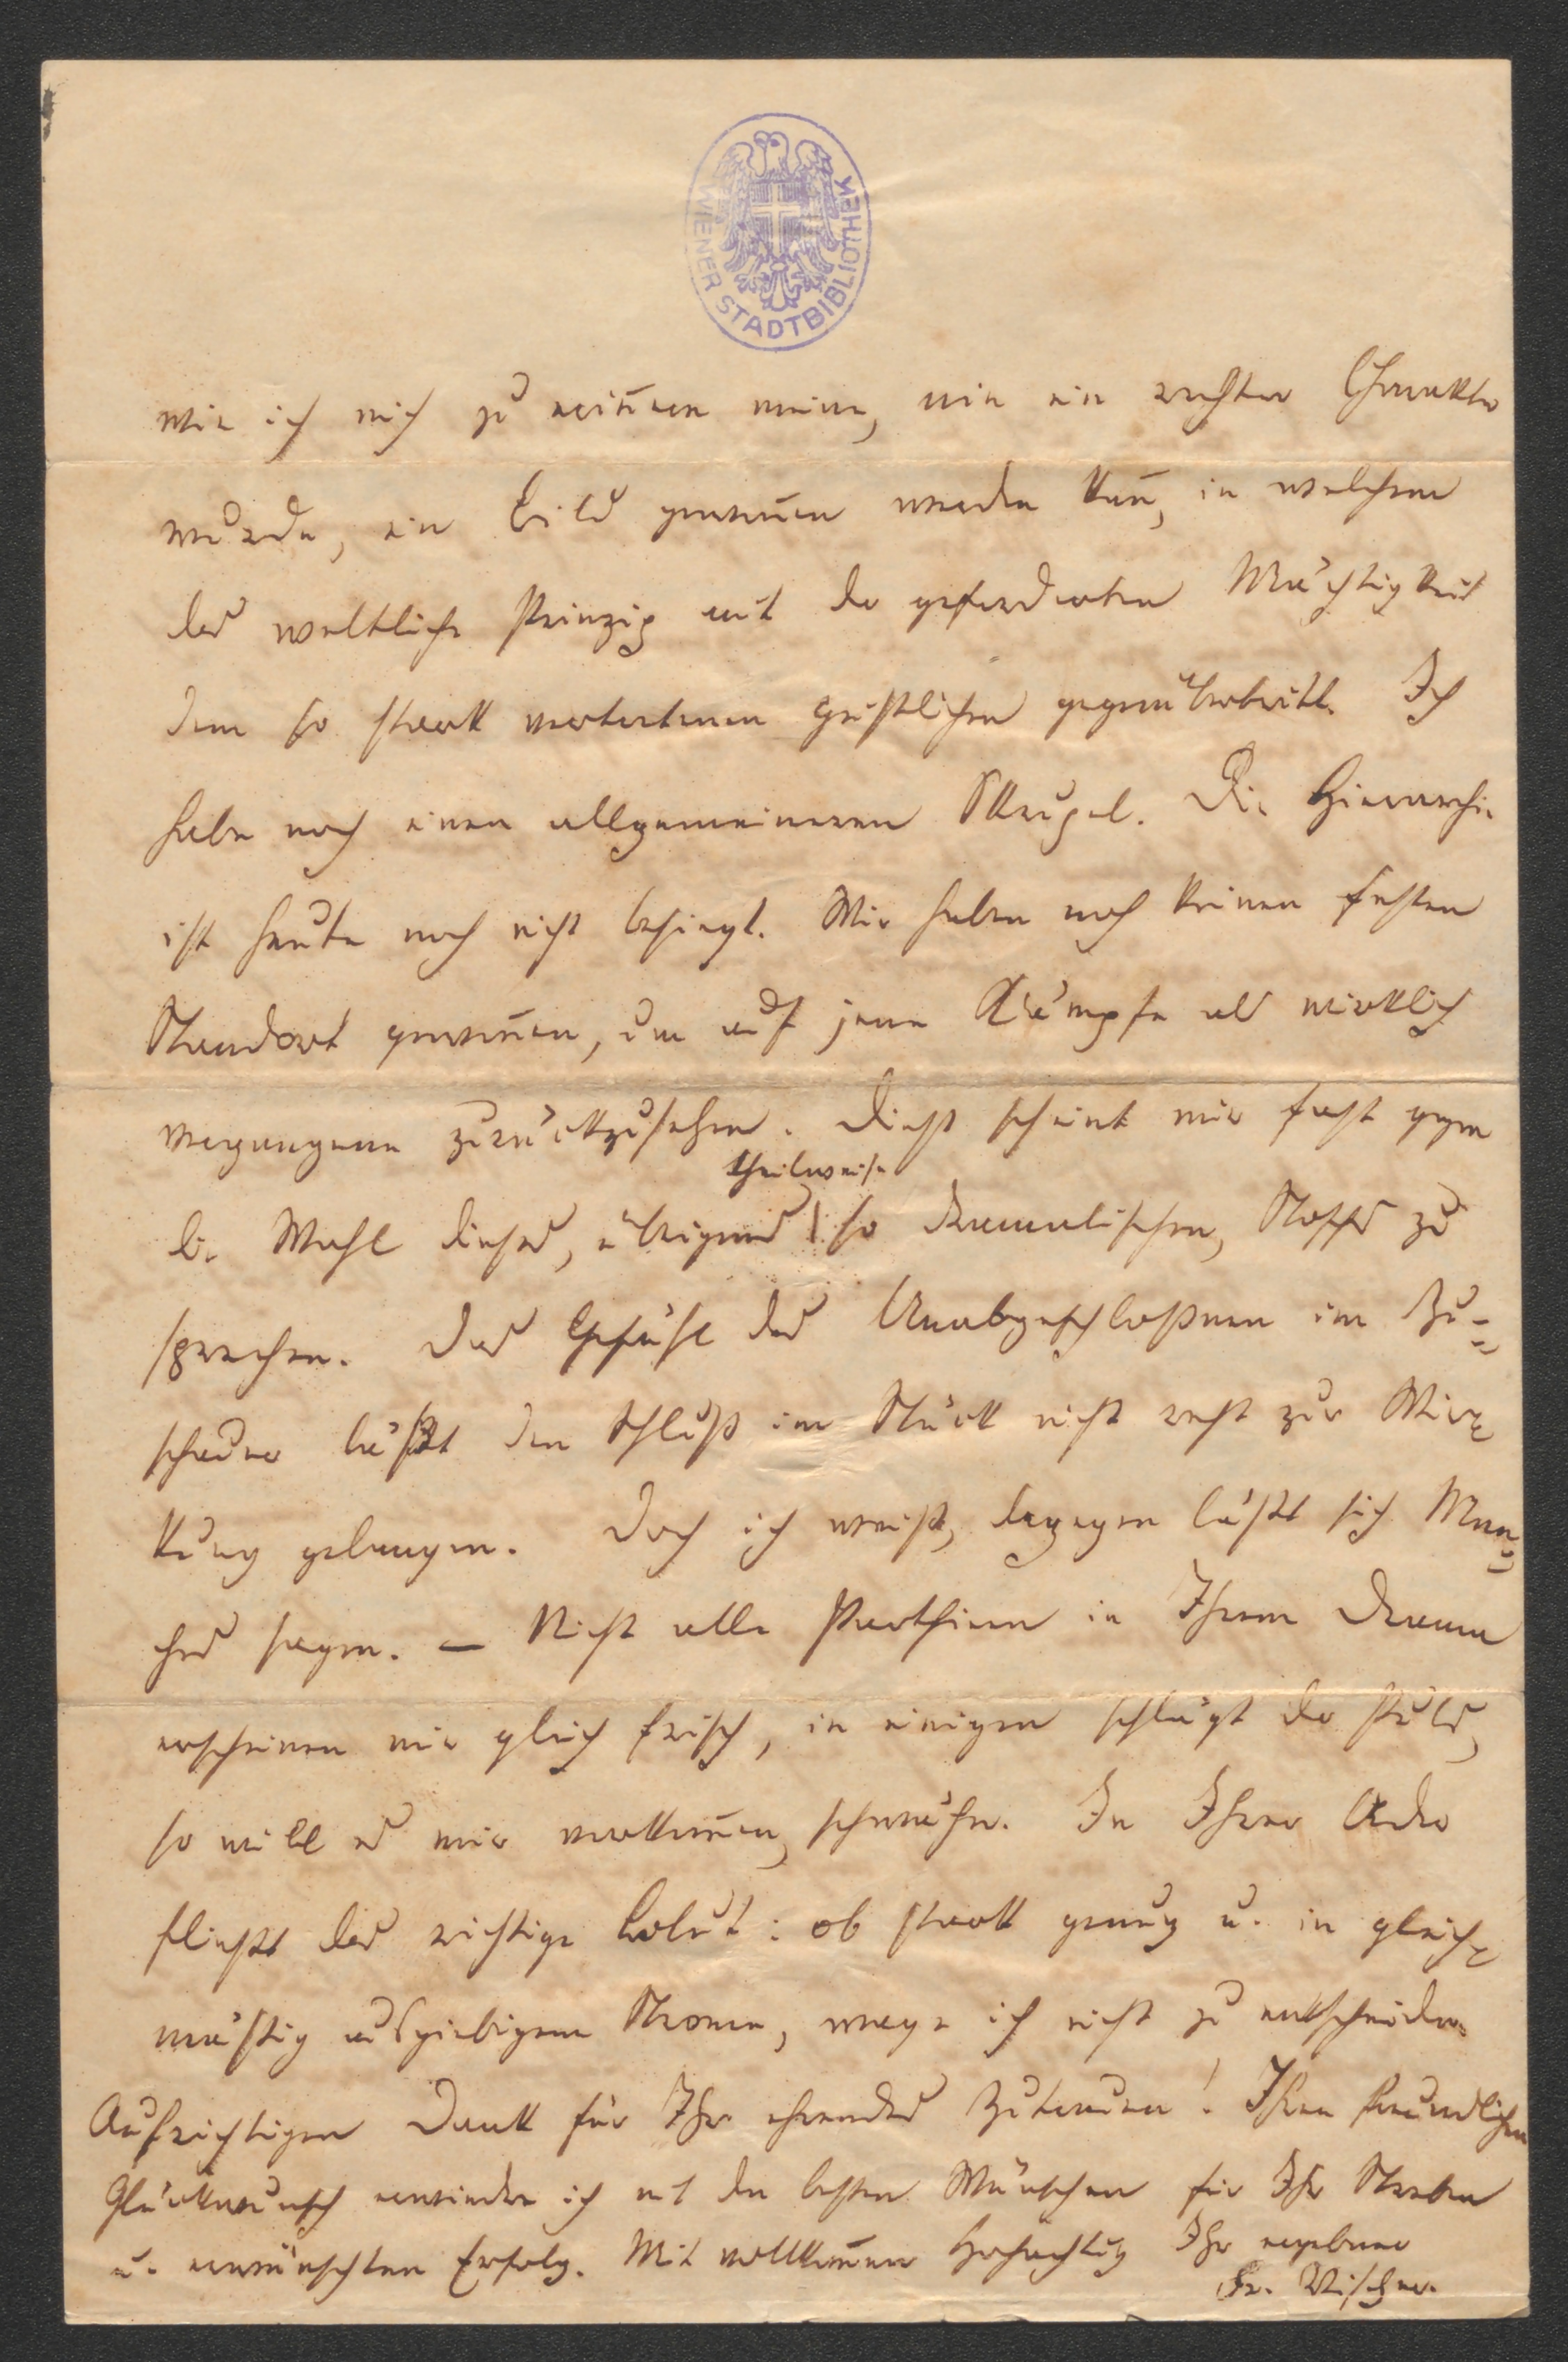 WIENER STADTBIBLIOTHEK
wie ich mich zu erin̄ern meine, wie ein rechter Charakter
würde, ein Bild gewon̄en werden kan̄, in welchem
das weltliche Prinzip mit der geforderten Mächtigkeit
dem so stark vertretenen geistlichen gegenübertritt. Ich
habe noch einen allgemeineren Skrupel. Die Hierarchie
ist heute noch nicht besiegt. Wir haben noch keinen festen
Standort gewon̄en, um auf jene Kämpfe als wirklich
vergangene zurückzusehen. Dieß scheint mir fast gegen
die Wahl dieses, übrigens theilweise so dramatischen, Stoffs zu
sprechen. Das Gefühl des Unabgeschloßnen im Zu-
schauer läßt den Schluß im Stück nicht recht zur Wir-
kung gelangen. Doch ich weiß, dagegen läßt sich Man-
ches sagen. — Nicht alle Parthieen in Ihrem Drama
erscheinen mir gleich frisch, in einigen schlägt der Puls,
so will es mir vorkom̄en, schwächer. In Ihrer Ader
fließt das richtige Blut: ob stark genug u. in gleich-
mäßig ausgiebigem Strome, wage ich nicht zu entscheiden.
Aufrichtigen Dank für Ihr ehrendes Zutrauen! Ihren freundlichen
Glückwunsch erwiedre ich mit den besten Wünschen für Ihr Streben
u. erwünschten Erfolg. Mit vollkom̄ener Hochachtung Ihr ergebner
Fr. Vischer.